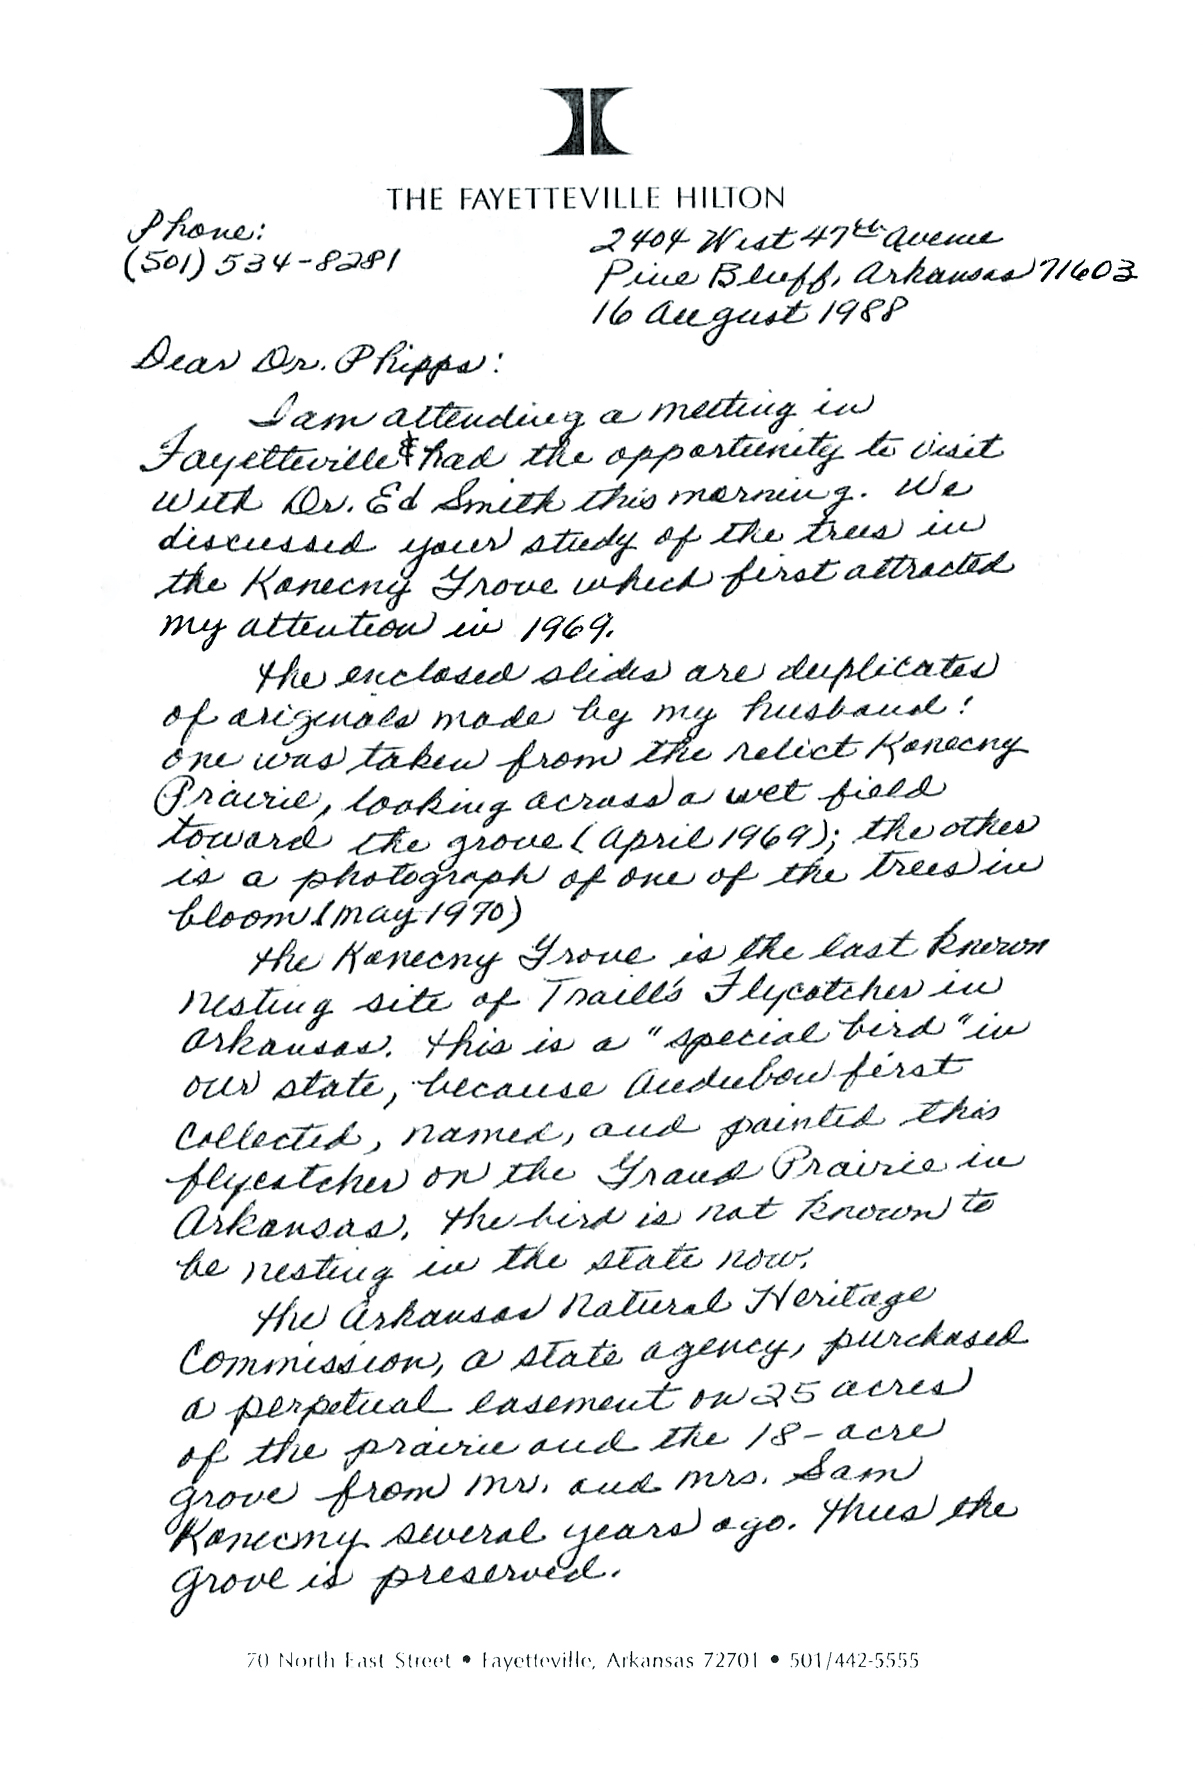 THE FAYETTEVILLE HILTON
Phone:
(501) 534-8281
2404 West 47th Avenue
Pine Bluff, Arkansas 71603
16 August 1988
Dear Dr. Phipps:
I am attending a meeting in
Fayetteville & had the opportunity to visit
with Dr. Ed Smith this morning. We
discussed your study of the trees in
the Konecny Grove which first attracted
my attention in 1969.
The enclosed slides are duplicates
of originals made by my husband:
one was taken from the relict Konecny
Prairie, looking across a wet field
toward the grove (April 1969); the other
is a photograph of one of the trees in
bloom (May 1970)
The Konecny Grove is the last known
nesting site of Traill's Flycatcher in
Arkansas. This is a "special bird" in
our state, because Audubon first
collected, named, and painted this
flycatcher on the Grand Prairie in
Arkansas. The bird is not known to
be nesting in the state now.
The Arkansas Natural Heritage
Commission, a state agency, purchased
a perpetual easement on 25 acres
of the prairie and the 18-acre
grove from Mr. and Mrs. Sam
Konecny several years ago. Thus the
grove is preserved.
70 North East Street • Fayetteville, Arkansas 72701 • 501/442-5555